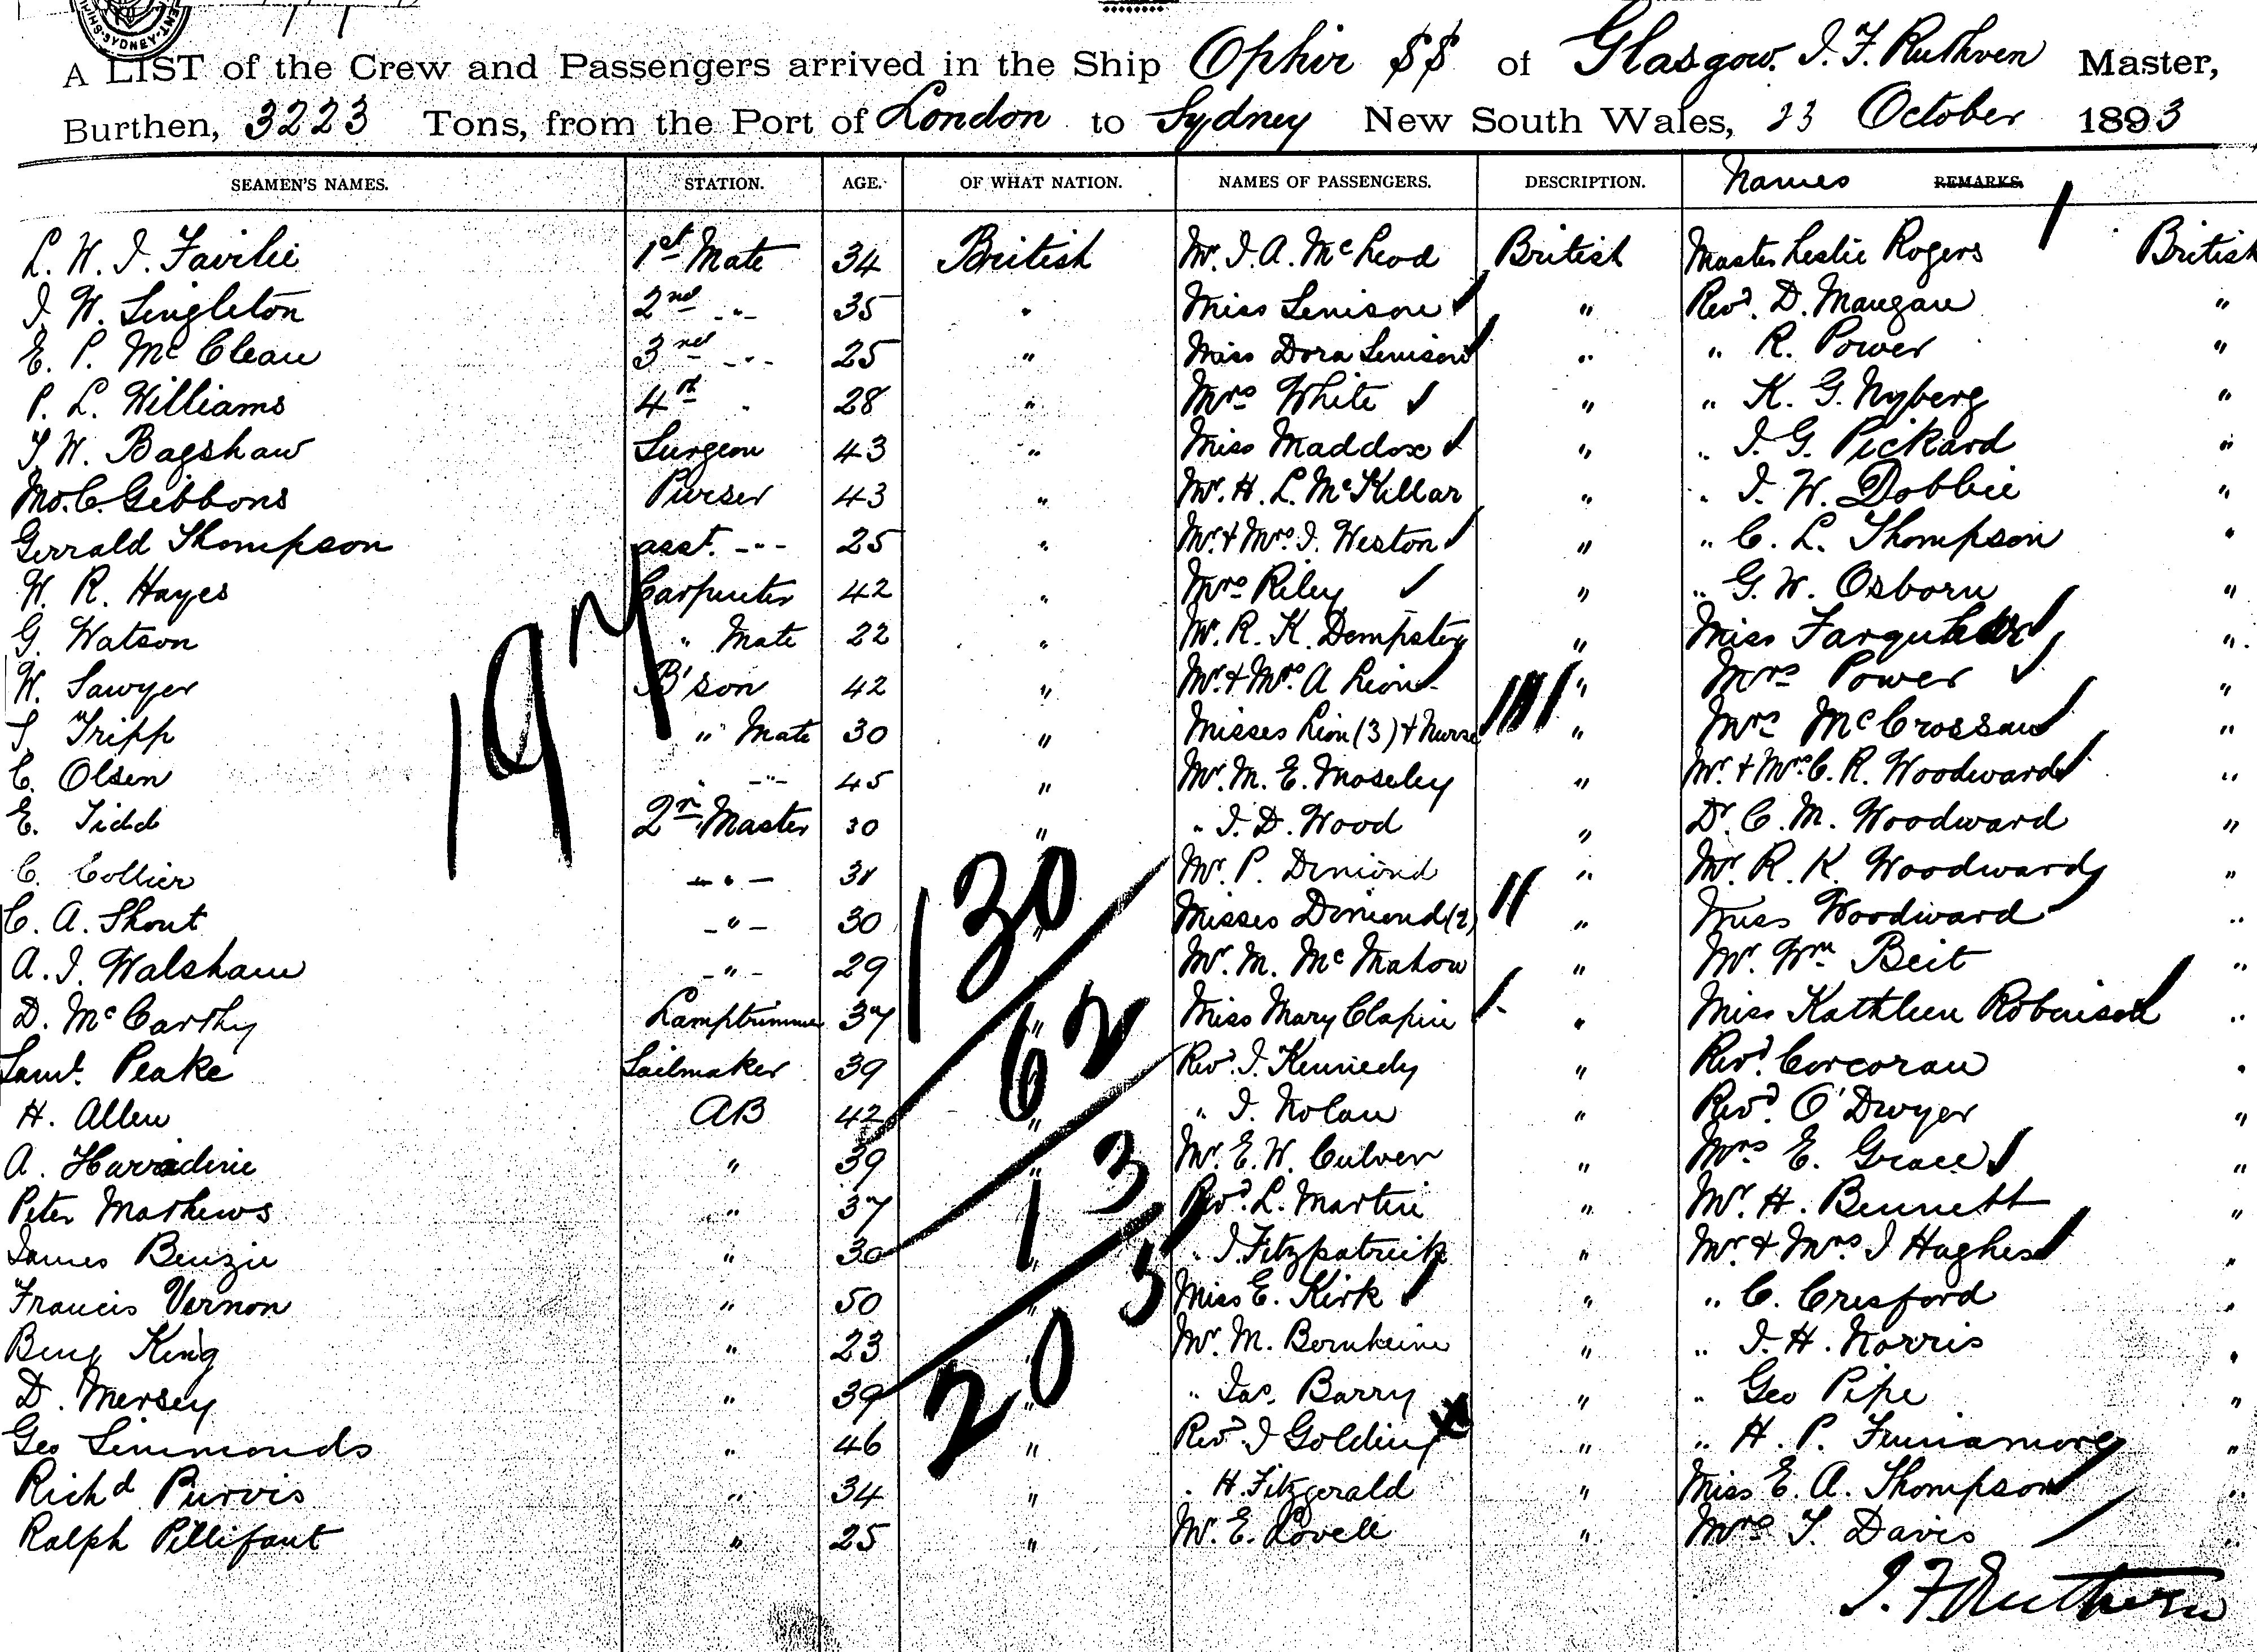 SYDNEY
A LIST of the Crew and Passengers arrived in the Ship Ophir SS of Glasgow. J. F. Ruthven Master,
Burthen, 3223 Tons, from the Port of London to Sydney New South Wales, 23 October 1893
SEAMEN'S NAMES. STATION. AGE. OF WHAT NATION. NAMES OF PASSENGERS. DESCRIPTION. Names REMARKS.
L. W. J. Fairlie 1st Mate 34 British Mr. J. A. McLeod British Master Leslie Rogers British
J. W. Singleton 2nd " 35 " Miss Lenison " Revd. D. Mangan "
E. P. McClean 3rd " 25 " Miss Dora Lenison " " R. Power "
P. L. Williams 4th " 28 " Mrs White " " K. G. Nyberg "
T. W. Bagshaw Surgeon 43 " Miss Maddox " " J. G. Pickard "
Gibbons Purser 43 " Mr. H. L. McKellar " " J. W. Dobbie "
Gerrald Thompson asst. " 25 " Mr. & Mrs. J. Weston " " C. L. Thompson "
W. R. Hayes Carpenter 42 " Mrs Riley " " G. W. Osborn "
G. Watson " Mate 22 " Mr. R. K. Dempster " Miss Farquhar "
W. Sawyer B'son 42 " Mr. & Mrs. A Lion " Mrs Power "
S. Tripp " Mate 30 " Misses Lion (3) & Nurse " Mrs McCrossan "
C. Olsen " " 45 " Mr. M. E. Moseley " Mr. & Mrs. C. R. Woodward "
E. Tidd 2r. Master 30 " " J. D. Wood " Dr. C. M. Woodward "
C. Collier " 31 Mr. P. Dimond " Mr. R. K. Woodward "
C. A. Shout " 30 " Misses Dimond (2) " Miss Woodward "
A. J. Walsham " 29 Mr. M. McMahon " Mr. Wm Beit "
D. McCarthy Lamptrimmer 37 " Miss Mary Clapin " Miss Kathleen Robinson "
Saml. Peake Sailmaker 39 " Revd. J. Kennedy " Revd. Corcoran "
H. Allen AB 42 " " J. Nolan " Revd. O'Dwyer "
A. Harraderie " 39 " Mr. E. W. Culver " Mrs E. Grace "
Peter Mathews " 37 Revd. L. Martin " Mr. H. Bennett "
James Benzie " 30 " " J. Fitzpatrick " Mr & Mrs J Hughes "
Francis Vernon " 50 " Miss E. Kirk " " C. Cresford "
Benj King " 23 " Mr. M. Bernheim " " J. H. Norris "
D. Mersey " 39 " " Jas. Barry " " Geo Pipe "
Geo Simmonds " 46 " Revd. J Golding " " H. P. "
Richd Purvis " 34 " " H. Fitzgerald " Miss E. A. Thompson "
Ralph Pillifant " 25 " Mr. E. Lovell " Mrs. T. Davis "
197
130
62
13
205
J. F. Ruthven